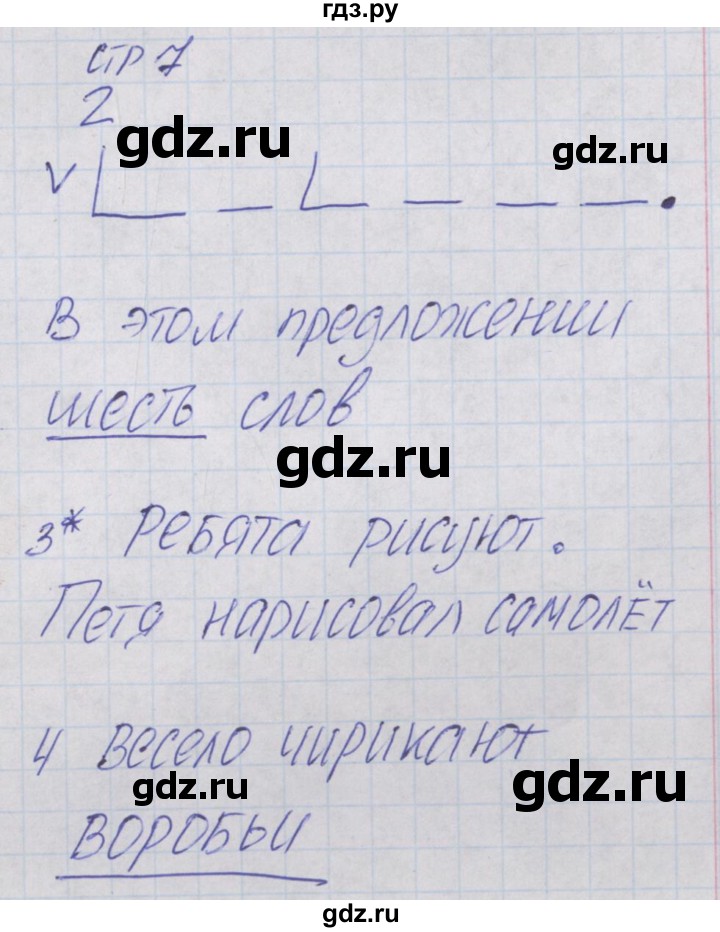 гдз.ру
стр 7
2
gdz.ru
gdz.ru
V
В этом предложении
шесть слов
gdz.ru
3* Ребята рисуют.
Петя нарисовал самолёт
4 весело чирикают
gdz.ru
gdz.ru
воробьи
gdz.ru